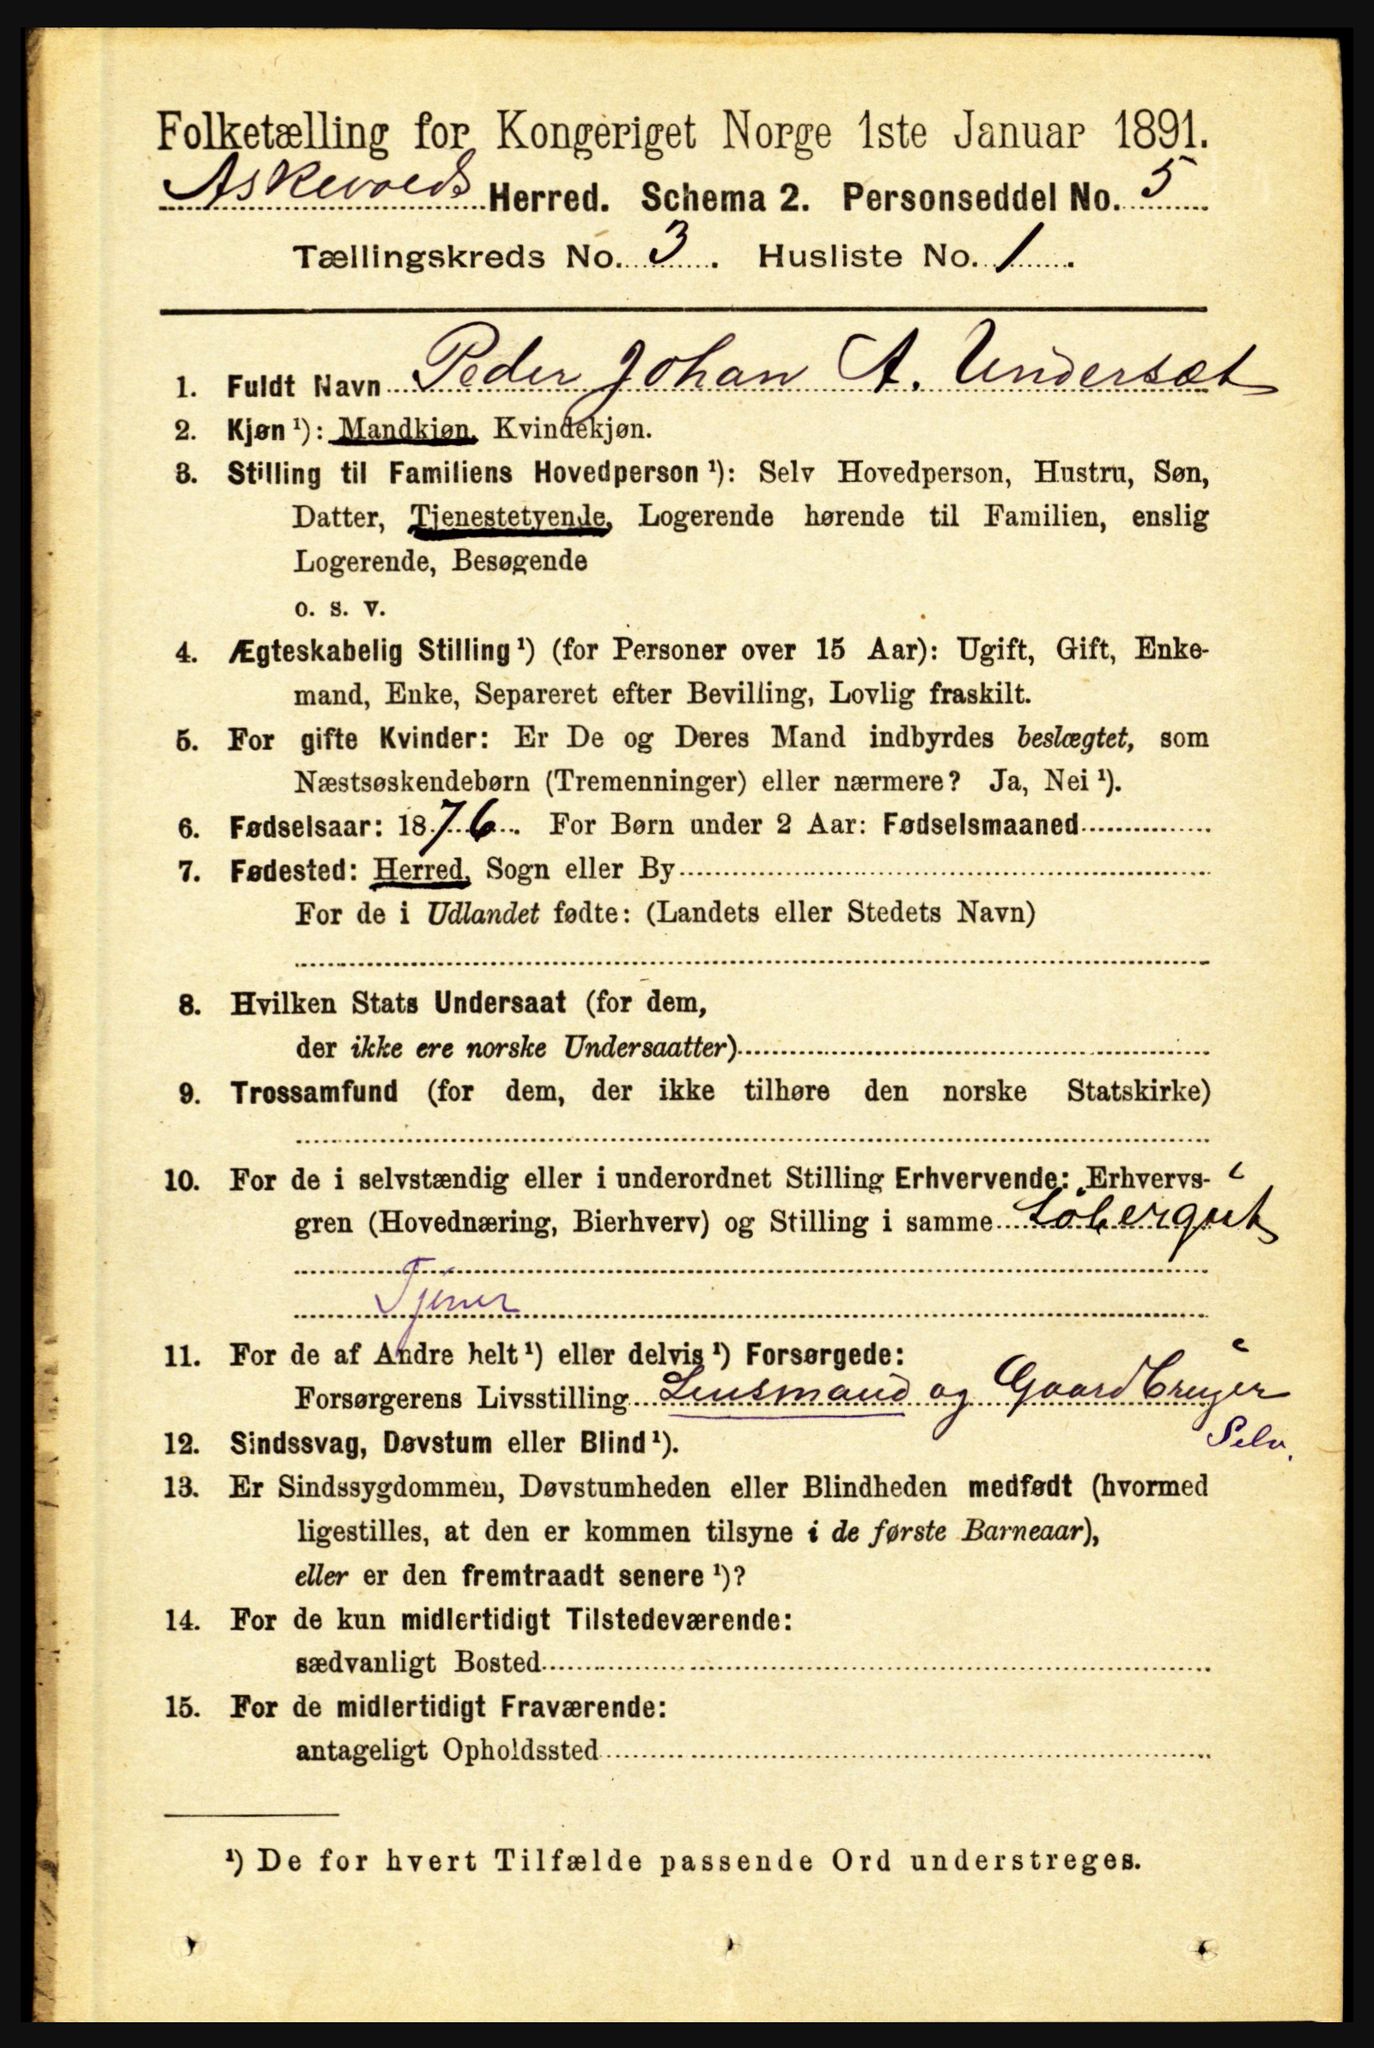 Folketælling for Kongeriget Norge 1ste Januar 1891.
Askevolds Herred. Schema 2. Personseddel No. 5
Tællingskreds No. 3. Husliste No. 1.
1. Fuldt Navn Peder Johan A. Undersæt
2. Kjøn ¹): Mandkjøn, Kvindekjøn.
3. Stilling til Familiens Hovedperson ¹): Selv Hovedperson, Hustru, Søn,
Datter, Tjenestetyende, Logerende hørende til Familien, enslig
Logerende, Besøgende
o. s. v.
4. Ægteskabelig Stilling ¹) (for Personer over 15 Aar): Ugift, Gift, Enke-
mand, Enke, Separeret efter Bevilling, Lovlig fraskilt.
5. For gifte Kvinder: Er De og Deres Mand indbyrdes beslægtet, som
Næstsøskendebørn (Tremenninger) eller nærmere? Ja, Nei ¹).
6. Fødselsaar: 1876. For Børn under 2 Aar: Fødselsmaaned
7. Fødested: Herred, Sogn eller By
For de i Udlandet fødte: (Landets eller Stedets Navn)
8. Hvilken Stats Undersaat (for dem,
der ikke ere norske Undersaatter)
9. Trossamfund (for dem, der ikke tilhøre den norske Statskirke)
10. For de i selvstændig eller i underordnet Stilling Erhvervende: Erhvervs-
gren (Hovednæring, Bierhverv) og Stilling i samme Løbergut
Tjener
11. For de af Andre helt ¹) eller delvis ¹) Forsørgede:
Forsørgerens Livsstilling Lensmand og Gaardbruger
Selv.
12. Sindssvag, Døvstum eller Blind ¹).
13. Er Sindssygdommen, Døvstumheden eller Blindheden medfødt (hvormed
ligestilles, at den er kommen tilsyne i de første Barneaar),
eller er den fremtraadt senere ¹)?
14. For de kun midlertidigt Tilstedeværende:
sædvanligt Bosted
15. For de midlertidigt Fraværende:
antageligt Opholdssted
¹) De for hvert Tilfælde passende Ord understreges.